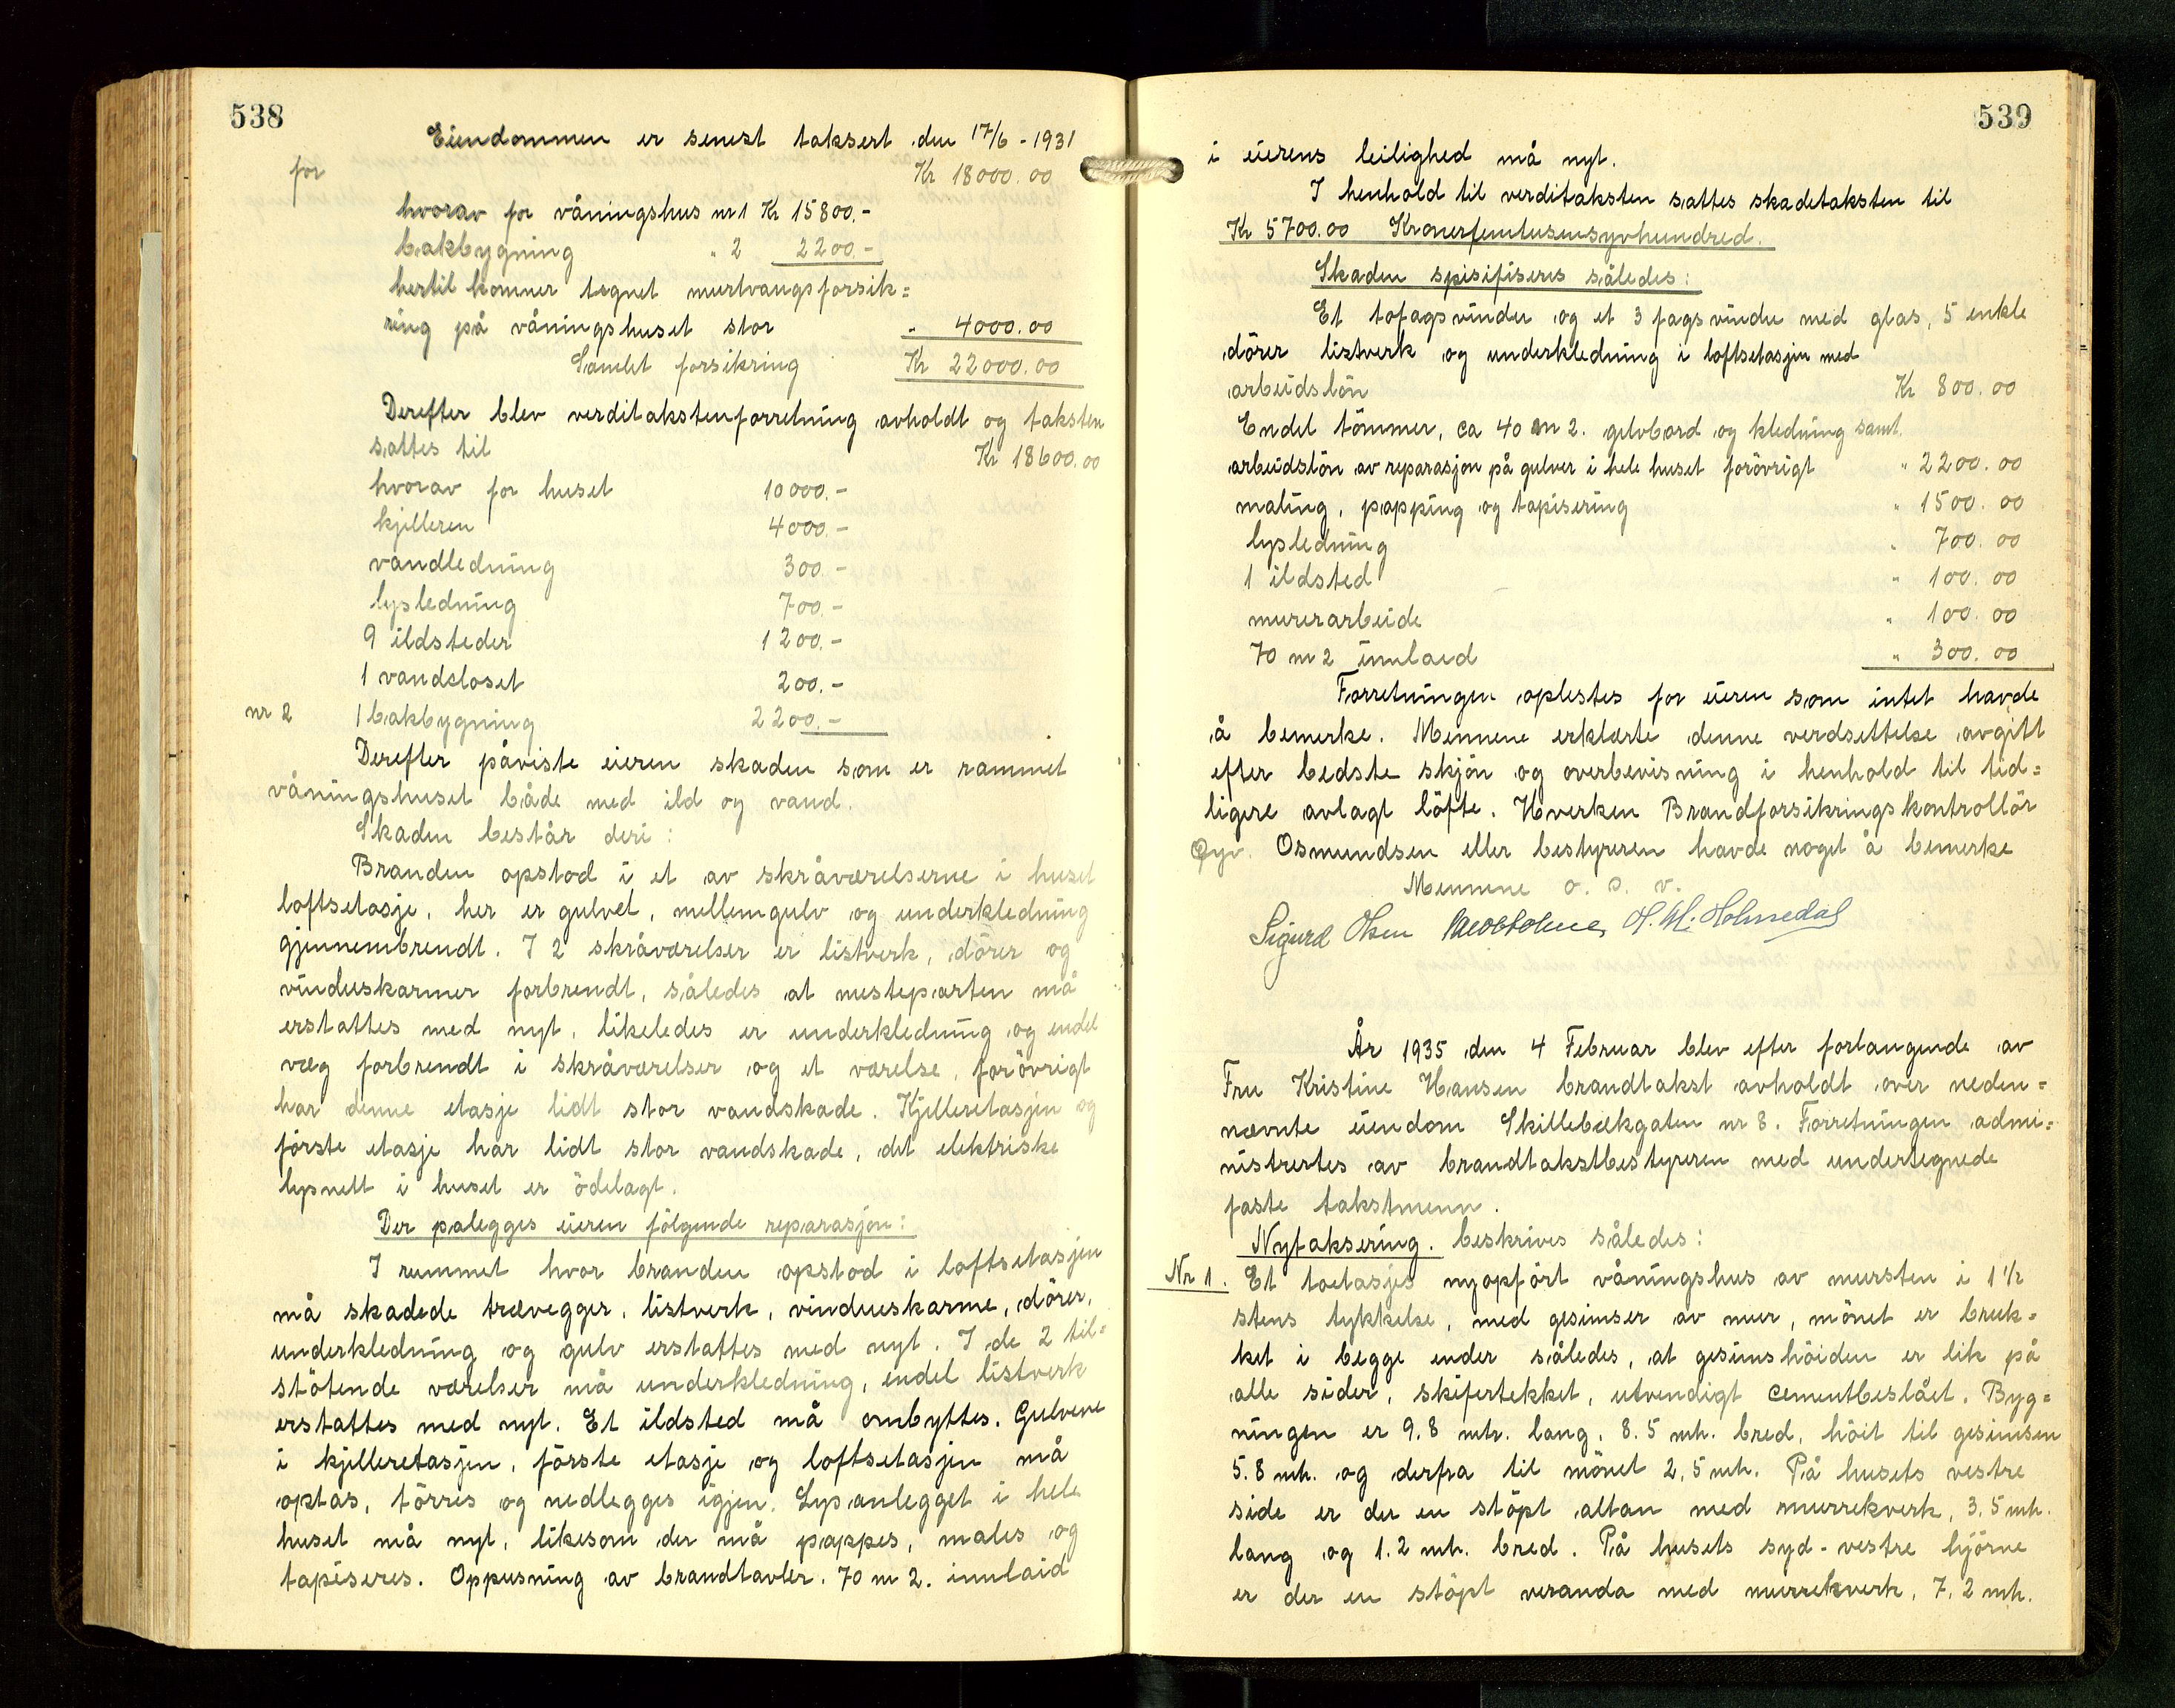 538
Eiendommen er senest taksert den 17/6 - 1931
for Kr 18000.00
hvorav for våningshus nr 1 Kr 15800.-
bakbygning " 2 2200.-
hertil kommer tegnet murtvangsforsik=
ring på våningshuset stor " 4000.00
Samlet forsikring Kr 22000.00
Derefter blev verditakstenforretning avholdt og taksten
sattes til Kr 18600.00
hvorav for huset 10000.-
kjelleren 4000.-
vandledning 300.-
lysledning 700.-
9 ildsteder 1200.-
1 vandcloset 200.-
nr 2 1 bakbygning 2200.-
Derefter påviste eieren skaden som er rammet
våningshuset både med ild og vand.
Skaden består deri:
Branden opstod i et av skråværelserne i huset
loftsetasje, her er gulvet, mellemgulv og underkledning
gjennembrendt. I 2 skråværelser er listverk, dörer og
vinduskarmer forbrendt, således at mesteparten må
erstattes med nyt, likeledes er underkledning og endel
væg forbrendt i skråværelser og et værelse, forövrigt
har denne etasje lidt stor vandskade. Kjelleretasjen og
förste etasje har lidt stor vandskade, det elektriske
lysnett i huset er ödelagt.
Der palegges eieren fölgende reparasjon:
I rummet hvor branden opstod i loftsetasjen
må skadede trævegger, listverk, vindueskarme, dörer,
underkledning og gulv erstattes med nyt. I de 2 til=
stötende værelser må underkledning, endel listverk
erstattes med nyt. Et ildsted må ombyttes. Gulvene
i kjelleretasjen, förste etasje og loftsetasjen må
optas, törres og nedlegges igjen. Lysanlegget i hele
huset må nyt, likesom der må pappes, males og
tapiseres. Oppusning av brandtavler. 70 m 2. innlaid
539
i eierens leilighed må nyt.
I henhold til verditaksten sattes skadetaksten til
Kr 5700.00 Kronerfemtusensyvhundred.
Skaden spisifiseres således:
Et tofagsvindu og et 3 fagsvindu med glas, 5 enkle
dörer listverk og underkledning i loftsetasjen med
arbeidslön Kr 800.00
Endel tömmer, ca 40 m 2. gulvbord og kledning samt
arbeidslön av reparasjon på gulver i hele huset forövrigt " 2200.00
maling, papping og tapisering " 1500.00
lysledning " 700.00
1 ildsted " 100.00
murerarbeide " 100.00
70 m 2 innlaid " 300.00
Forretningen oplestes for eieren som intet havde
å bemerke. Mennene erklærte denne verdsettelse avgitt
efter bedste skjön og overbevisning i henhold til tid=
ligere avlagt löfte. Hverken Brandforsikringskontrollör
Øyv. Osmundsen eller bestyreren havde noget å bemerke
Mennene o. s. v.
Sigurd Olsen H. M. Holmedal
År 1935 den 4 Februar blev efter forlangende av
Fru Kristine Hansen brandtakst avholdt over neden=
nævnte eiendom Skillebækgaten nr 8. Forretningen admi=
nistrertes av brandtakstbestyreren med undertegnede
faste takstmenn.
Nytaksering. beskrives således:
Nr 1. Et toetasjes nyopfört våningshus av mursten i 1 1/2
stens tykkelse, med gesimser av mur, mönet er bruk=
ket i begge ender således, at gesimshöiden er lik på
alle sider, skifertekket, utvendigt cementbeslået. Byg=
ningen er 9.8 mtr. lang, 8.5 mtr. bred, höit til gesimsen
5.8 mtr. og derfra til mönet 2.5 mtr. På husets vestre
side er der en stöpt altan med murrekverk, 3.5 mtr.
lang og 1.2 mtr. bred. På husets syd-vestre hjörne
er der en stöpt veranda med murrekverk, 7.2 mtr.